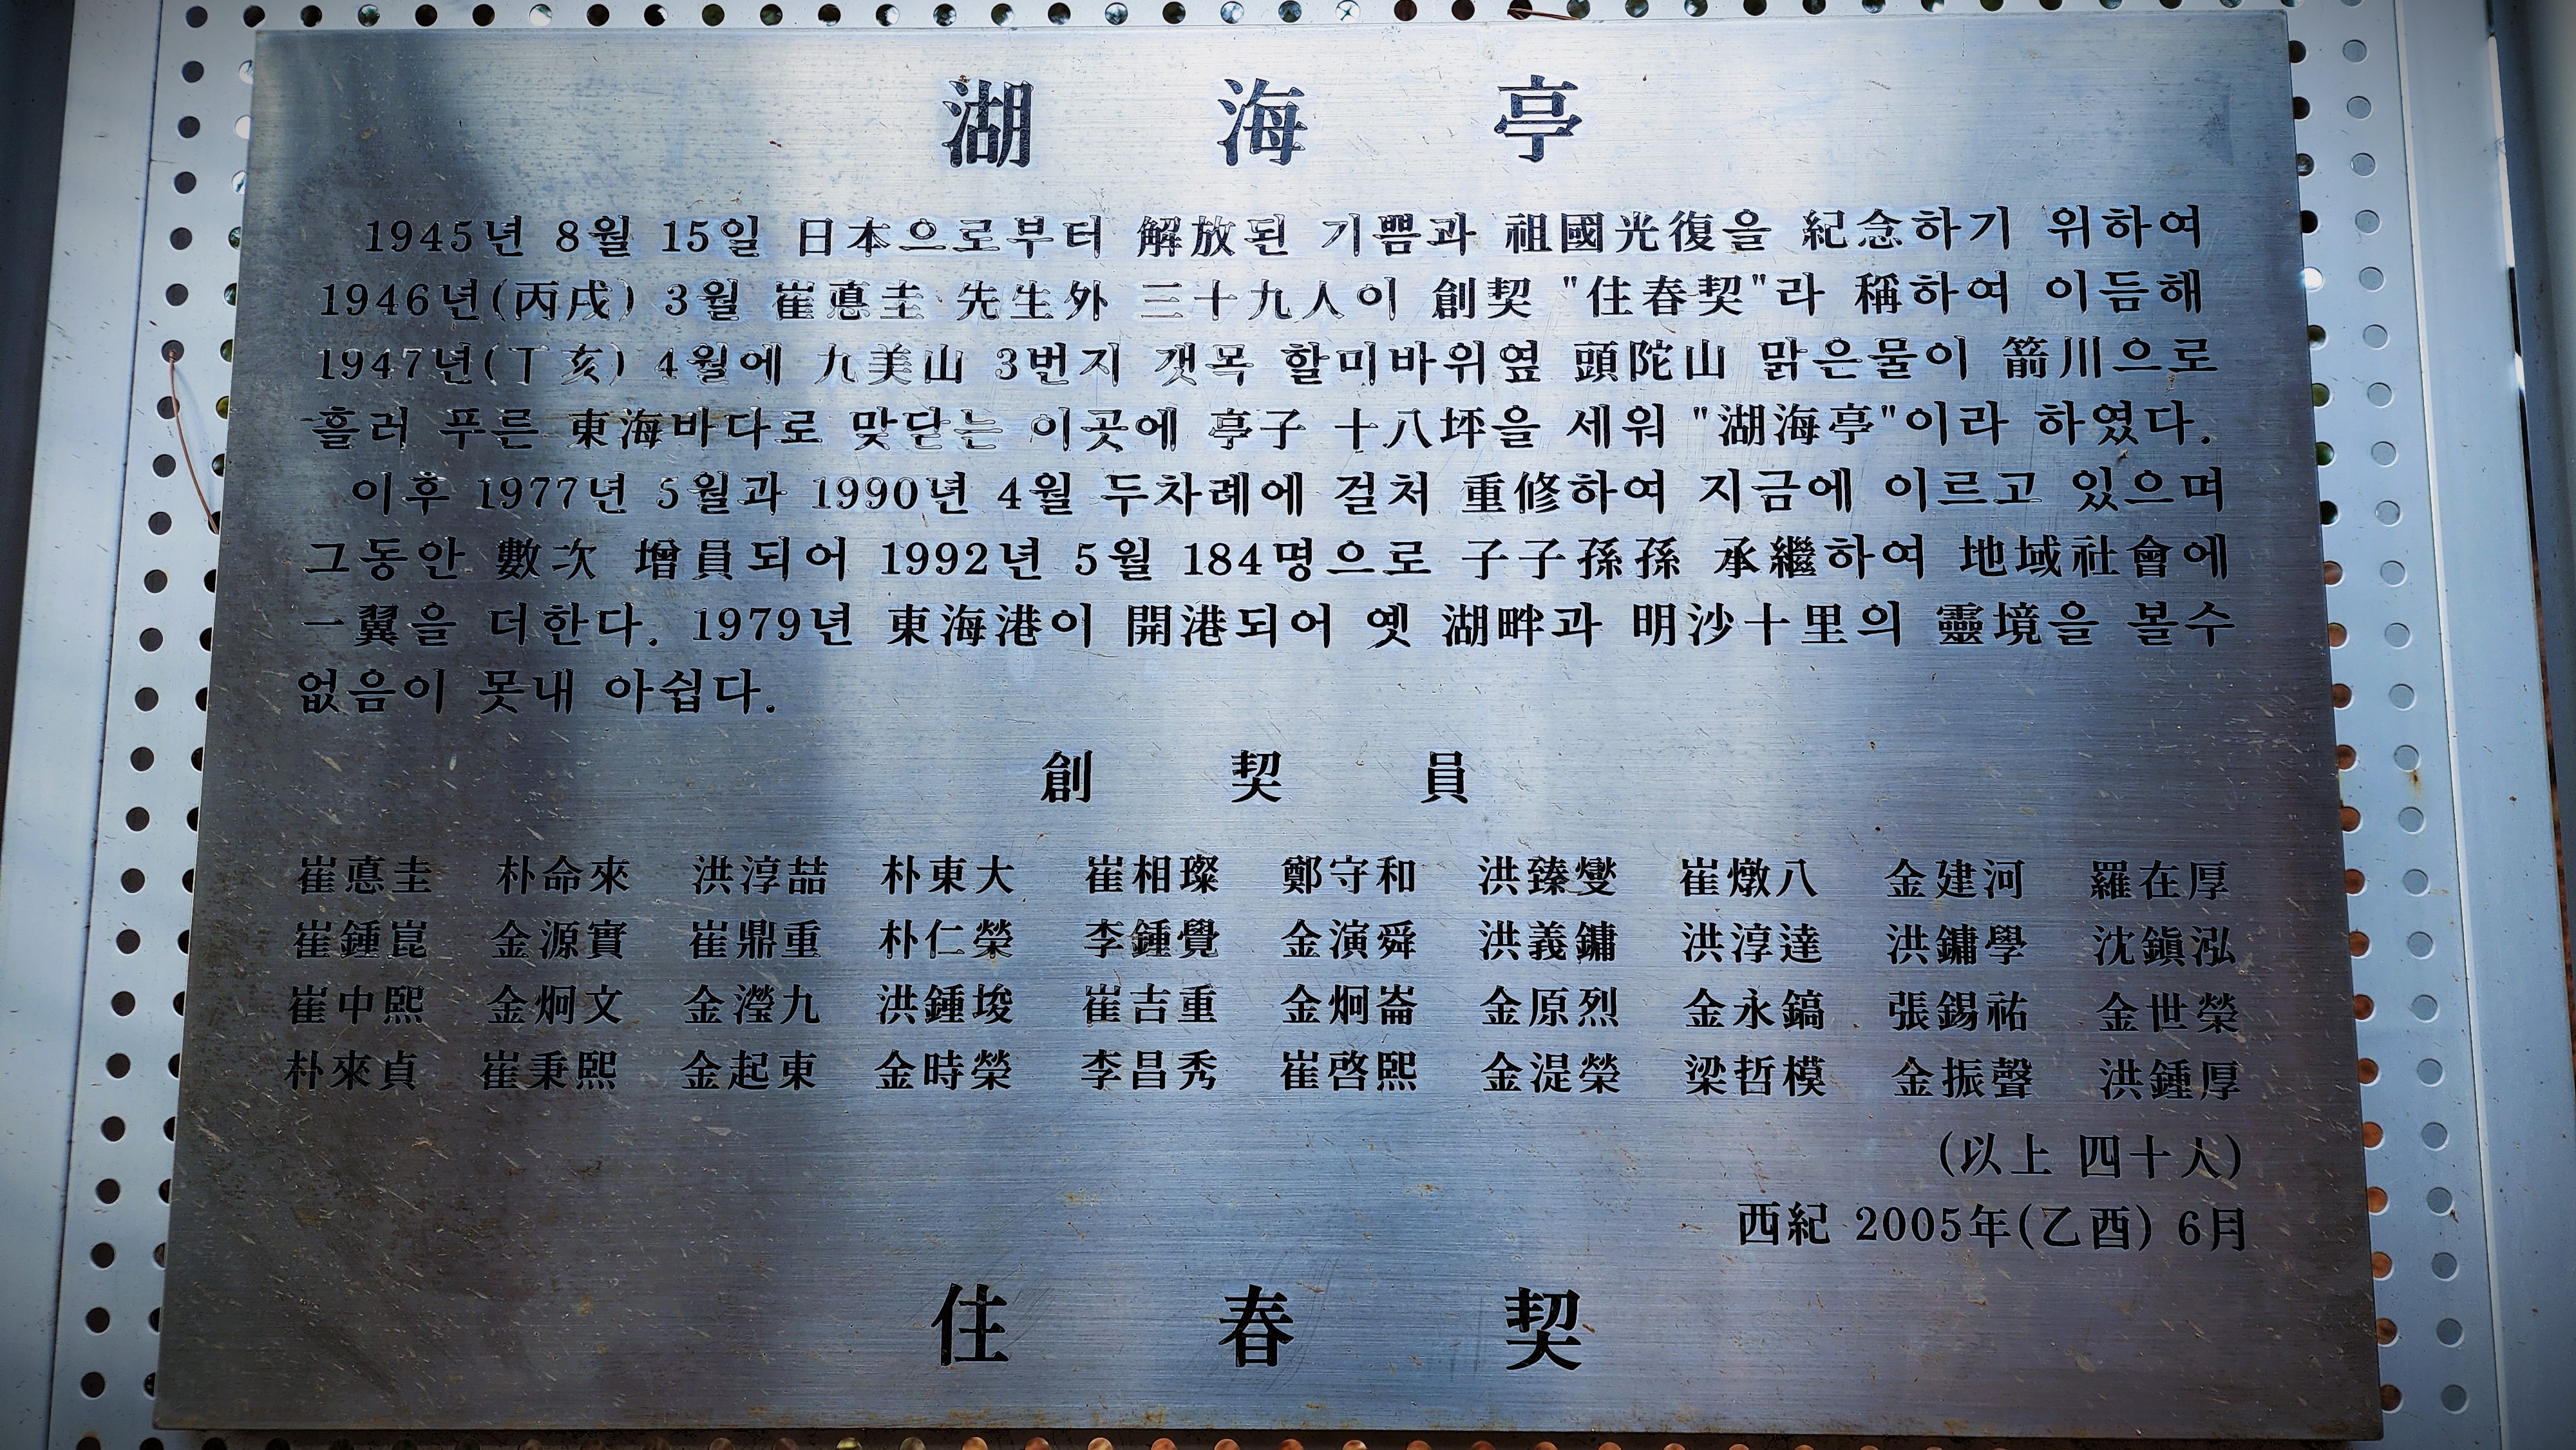 湖海亭
1945년 8월 15일 日本으로부터 解放된 기쁨과 祖國光復을 紀念하기 위하여
1946년(丙戌) 3월 崔悳圭 先生外 三十九人이 創契 "住春契"라 稱하여 이듬해
1947년(丁亥) 4월에 九美山 3번지 갯목 할미바위옆 頭陀山 맑은물이 箭川으로
흘러 푸른 東海바다로 맞닫는 이곳에 亭子 十八坪을 세워 "湖海亭"이라 하였다.
이후 1977년 5월과 1990년 4월 두차례에 걸처 重修하여 지금에 이르고 있으며
그동안 數次 增員되어 1992년 5월 184명으로 子子孫孫 承繼하여 地域社會에
一翼을 더한다. 1979년 東海港이 開港되어 옛 湖畔과 明沙十里의 靈境을 볼수
없음이 못내 아쉽다.
創契員
崔悳圭 朴命來 洪淳喆 朴東大 崔相璨 鄭守和 洪臻燮 崔燉八 金建河 羅在厚
崔鍾崑 金源實 崔鼎重 朴仁榮 李鍾覺 金演舜 洪義鏞 洪淳達 洪鏞學 沈鎭泓
崔中熙 金炯文 金瀅九 洪鍾埈 崔吉重 金炯崙 金原烈 金永鎬 張錫祐 金世榮
朴來貞 崔秉熙 金起東 金時榮 李昌秀 崔啓熙 金湜榮 梁哲模 金振聲 洪鍾厚
(以上 四十人)
西紀 2005年(乙酉) 6月
住春契